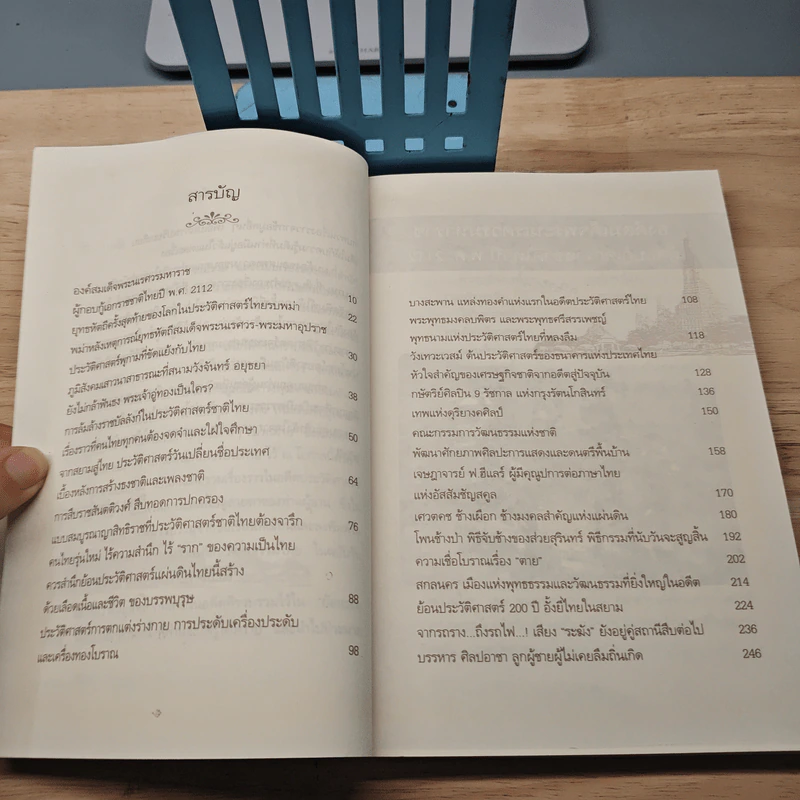 สารบัญ
องค์สมเด็จพระนเรศวรมหาราช
ผู้กอบกู้เอกราชชาติไทยปี พ.ศ. 2112 10
ยุทธหัตถีครั้งสุดท้ายของโลกในประวัติศาสตร์ไทยรบพม่า 22
พม่าหลังเหตุการณ์ยุทธหัตถีสมเด็จพระนเรศวร-พระมหาอุปราช
ประวัติศาสตร์พุกามที่ขัดแย้งกับไทย 30
ภูมิสังคมเสวนาสาธารณะที่สนามวังจันทร์ อยุธยา
ยังไม่กล้าฟันธง พระเจ้าอู่ทองเป็นใคร? 38
การล้มล้างราชบัลลังก์ในประวัติศาสตร์ชาติไทย
เรื่องราวที่คนไทยทุกคนต้องจดจำและใฝ่ใจศึกษา 50
จากสยามสู่ไทย ประวัติศาสตร์วันเปลี่ยนชื่อประเทศ
เบื้องหลังการสร้างธงชาติและเพลงชาติ 64
การสืบราชสันตติวงศ์ สืบทอดการปกครอง
แบบสมบูรณาญาสิทธิราชที่ประวัติศาสตร์ชาติไทยต้องจารึก 76
คนไทยรุ่นใหม่ ไร้ความสำนึก ไร้ "ราก" ของความเป็นไทย
ควรสำนึกย้อนประวัติศาสตร์แผ่นดินไทยนี้สร้าง
ด้วยเลือดเนื้อและชีวิต ของบรรพบุรุษ 88
ประวัติศาสตร์การตกแต่งร่างกาย การประดับเครื่องประดับ
และเครื่องทองโบราณ 98
บางสะพาน แหล่งทองคำแห่งแรกในอดีตประวัติศาสตร์ไทย 108
พระพุทธมงคลบพิตร และพระพุทธศรีสรรเพชญ์
พุทธนามแห่งประวัติศาสตร์ไทยที่หลงลืม 118
วังเทวะเวสม์ ต้นประวัติศาสตร์ของธนาคารแห่งประเทศไทย
หัวใจสำคัญของเศรษฐกิจชาติจากอดีตสู่ปัจจุบัน 128
กษัตริย์ศิลปิน 9 รัชกาล แห่งกรุงรัตนโกสินทร์ 136
เทพแห่งดุริยางคศิลป์ 150
คณะกรรมการวัฒนธรรมแห่งชาติ
พัฒนาศักยภาพศิลปะการแสดงและดนตรีพื้นบ้าน 158
เจษฎาจารย์ ฟ.ฮีแลร์ ผู้มีคุณูปการต่อภาษาไทย
แห่งอัสสัมชัญสกูล 170
เศวตคช ช้างเผือก ช้างมงคลสำคัญแห่งแผ่นดิน 180
โพนช้างป่า พิธีจับช้างของส่วยสุรินทร์ พิธีกรรมที่นับวันจะสูญสิ้น 192
ความเชื่อโบราณเรื่อง "ตาย" 202
สกลนคร เมืองแห่งพุทธธรรมและวัฒนธรรมที่ยิ่งใหญ่ในอดีต 214
ย้อนประวัติศาสตร์ 200 ปี อั้งยี่ไทยในสยาม 224
จากรถราง...ถึงรถไฟ...! เสียง "ระฆัง" ยังอยู่คู่สถานีสืบต่อไป 236
บรรหาร ศิลปอาชา ลูกผู้ชายผู้ไม่เคยลืมถิ่นเกิด 246